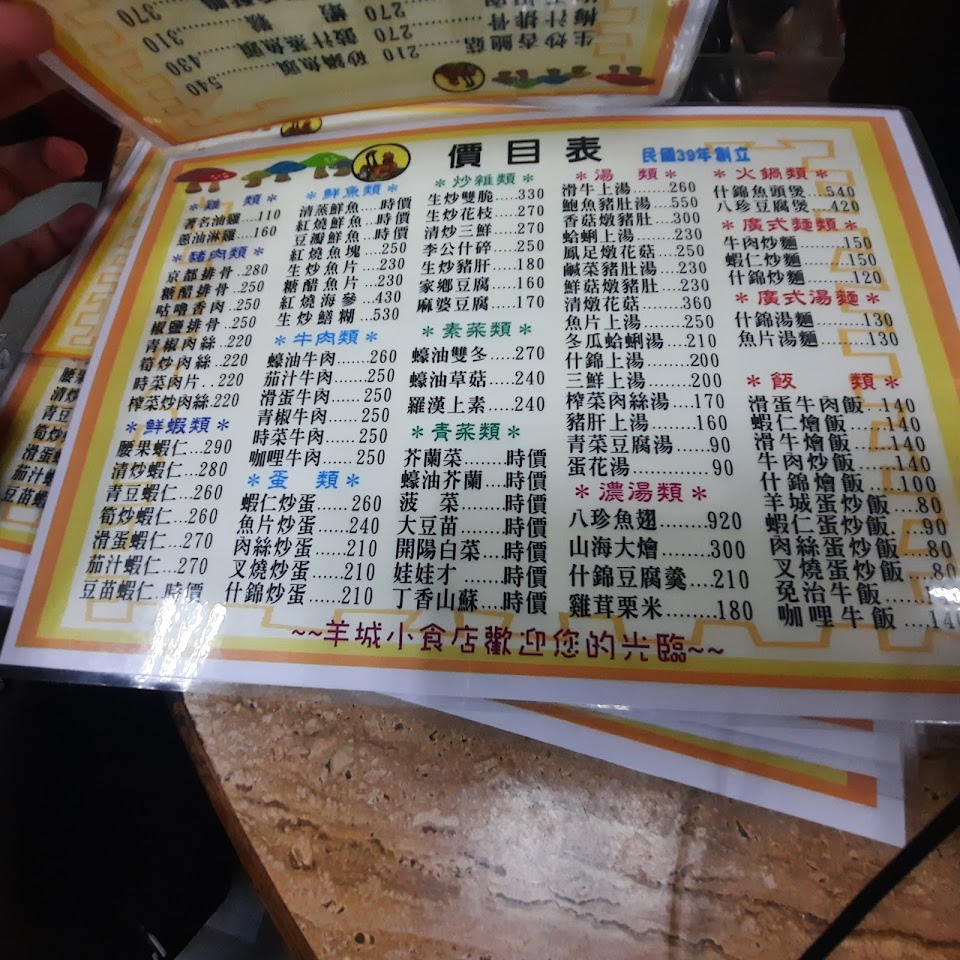 價目表
民國39年創立
*雞 類*
著名油雞...110
蔥油淋雞...160
*豬肉類*
京都排骨.280
糖醋排骨.250
咕嚕香肉.250
椒鹽排骨.250
青椒肉絲..220
筍炒肉絲..220
時菜肉片..220
榨菜炒肉絲220
*鮮蝦類*
腰果蝦仁...290
清炒蝦仁...280
青豆蝦仁...260
筍炒蝦仁...260
滑蛋蝦仁...270
茄汁蝦仁...270
豆苗蝦仁..時價
*鮮魚類*
清蒸鮮魚...時價
紅燒鮮魚...時價
豆瓣鮮魚...時價
紅燒魚塊...250
生炒魚片...230
糖醋魚片...230
紅燒海參...430
生炒鱔糊...530
*牛肉類*
蠔油牛肉......260
茄汁牛肉......250
滑蛋牛肉......250
青椒牛肉......250
時菜牛肉......250
咖哩牛肉......250
*蛋 類*
蝦仁炒蛋......260
魚片炒蛋......240
肉絲炒蛋......210
叉燒炒蛋......210
什錦炒蛋......210
*炒雜類*
生炒雙脆....330
生炒花枝....270
清炒三鮮....270
李公什碎....250
生炒豬肝....180
家鄉豆腐....160
麻婆豆腐....170
*素菜類*
蠔油雙冬....270
蠔油草菇....240
羅漢上素....240
*青菜類*
芥蘭菜......時價
蠔油芥蘭....時價
菠 菜......時價
大豆苗......時價
開陽白菜....時價
娃娃才......時價
丁香山蘇....時價
*湯 類*
滑牛上湯......260
鮑魚豬肚湯....550
香菇燉豬肚....300
蛤蜊上湯......230
鳳足燉花菇....250
鹹菜豬肚湯....230
鮮菇燉豬肚....230
清燉花菇......360
魚片上湯......250
冬瓜蛤蜊湯....210
什錦上湯......200
三鮮上湯......200
榨菜肉絲湯....170
豬肝上湯......160
青菜豆腐湯.....90
蛋花湯.........90
*濃湯類*
八珍魚翅......920
山海大燴......300
什錦豆腐羹....210
雞茸栗米......180
*火鍋類*
什錦魚頭煲...540
八珍豆腐煲...420
*廣式麵類*
牛肉炒麵......150
蝦仁炒麵......150
什錦炒麵......120
*廣式湯麵*
什錦湯麵......130
魚片湯麵......130
*飯 類*
滑蛋牛肉飯..140
蝦仁燴飯....140
滑牛燴飯....140
牛肉炒飯....140
什錦燴飯....100
羊城蛋炒飯...80
蝦仁蛋炒飯..90
肉絲蛋炒飯...80
叉燒蛋炒飯...80
免治牛飯
咖哩牛飯....140
~~羊城小食店歡迎您的光臨~~